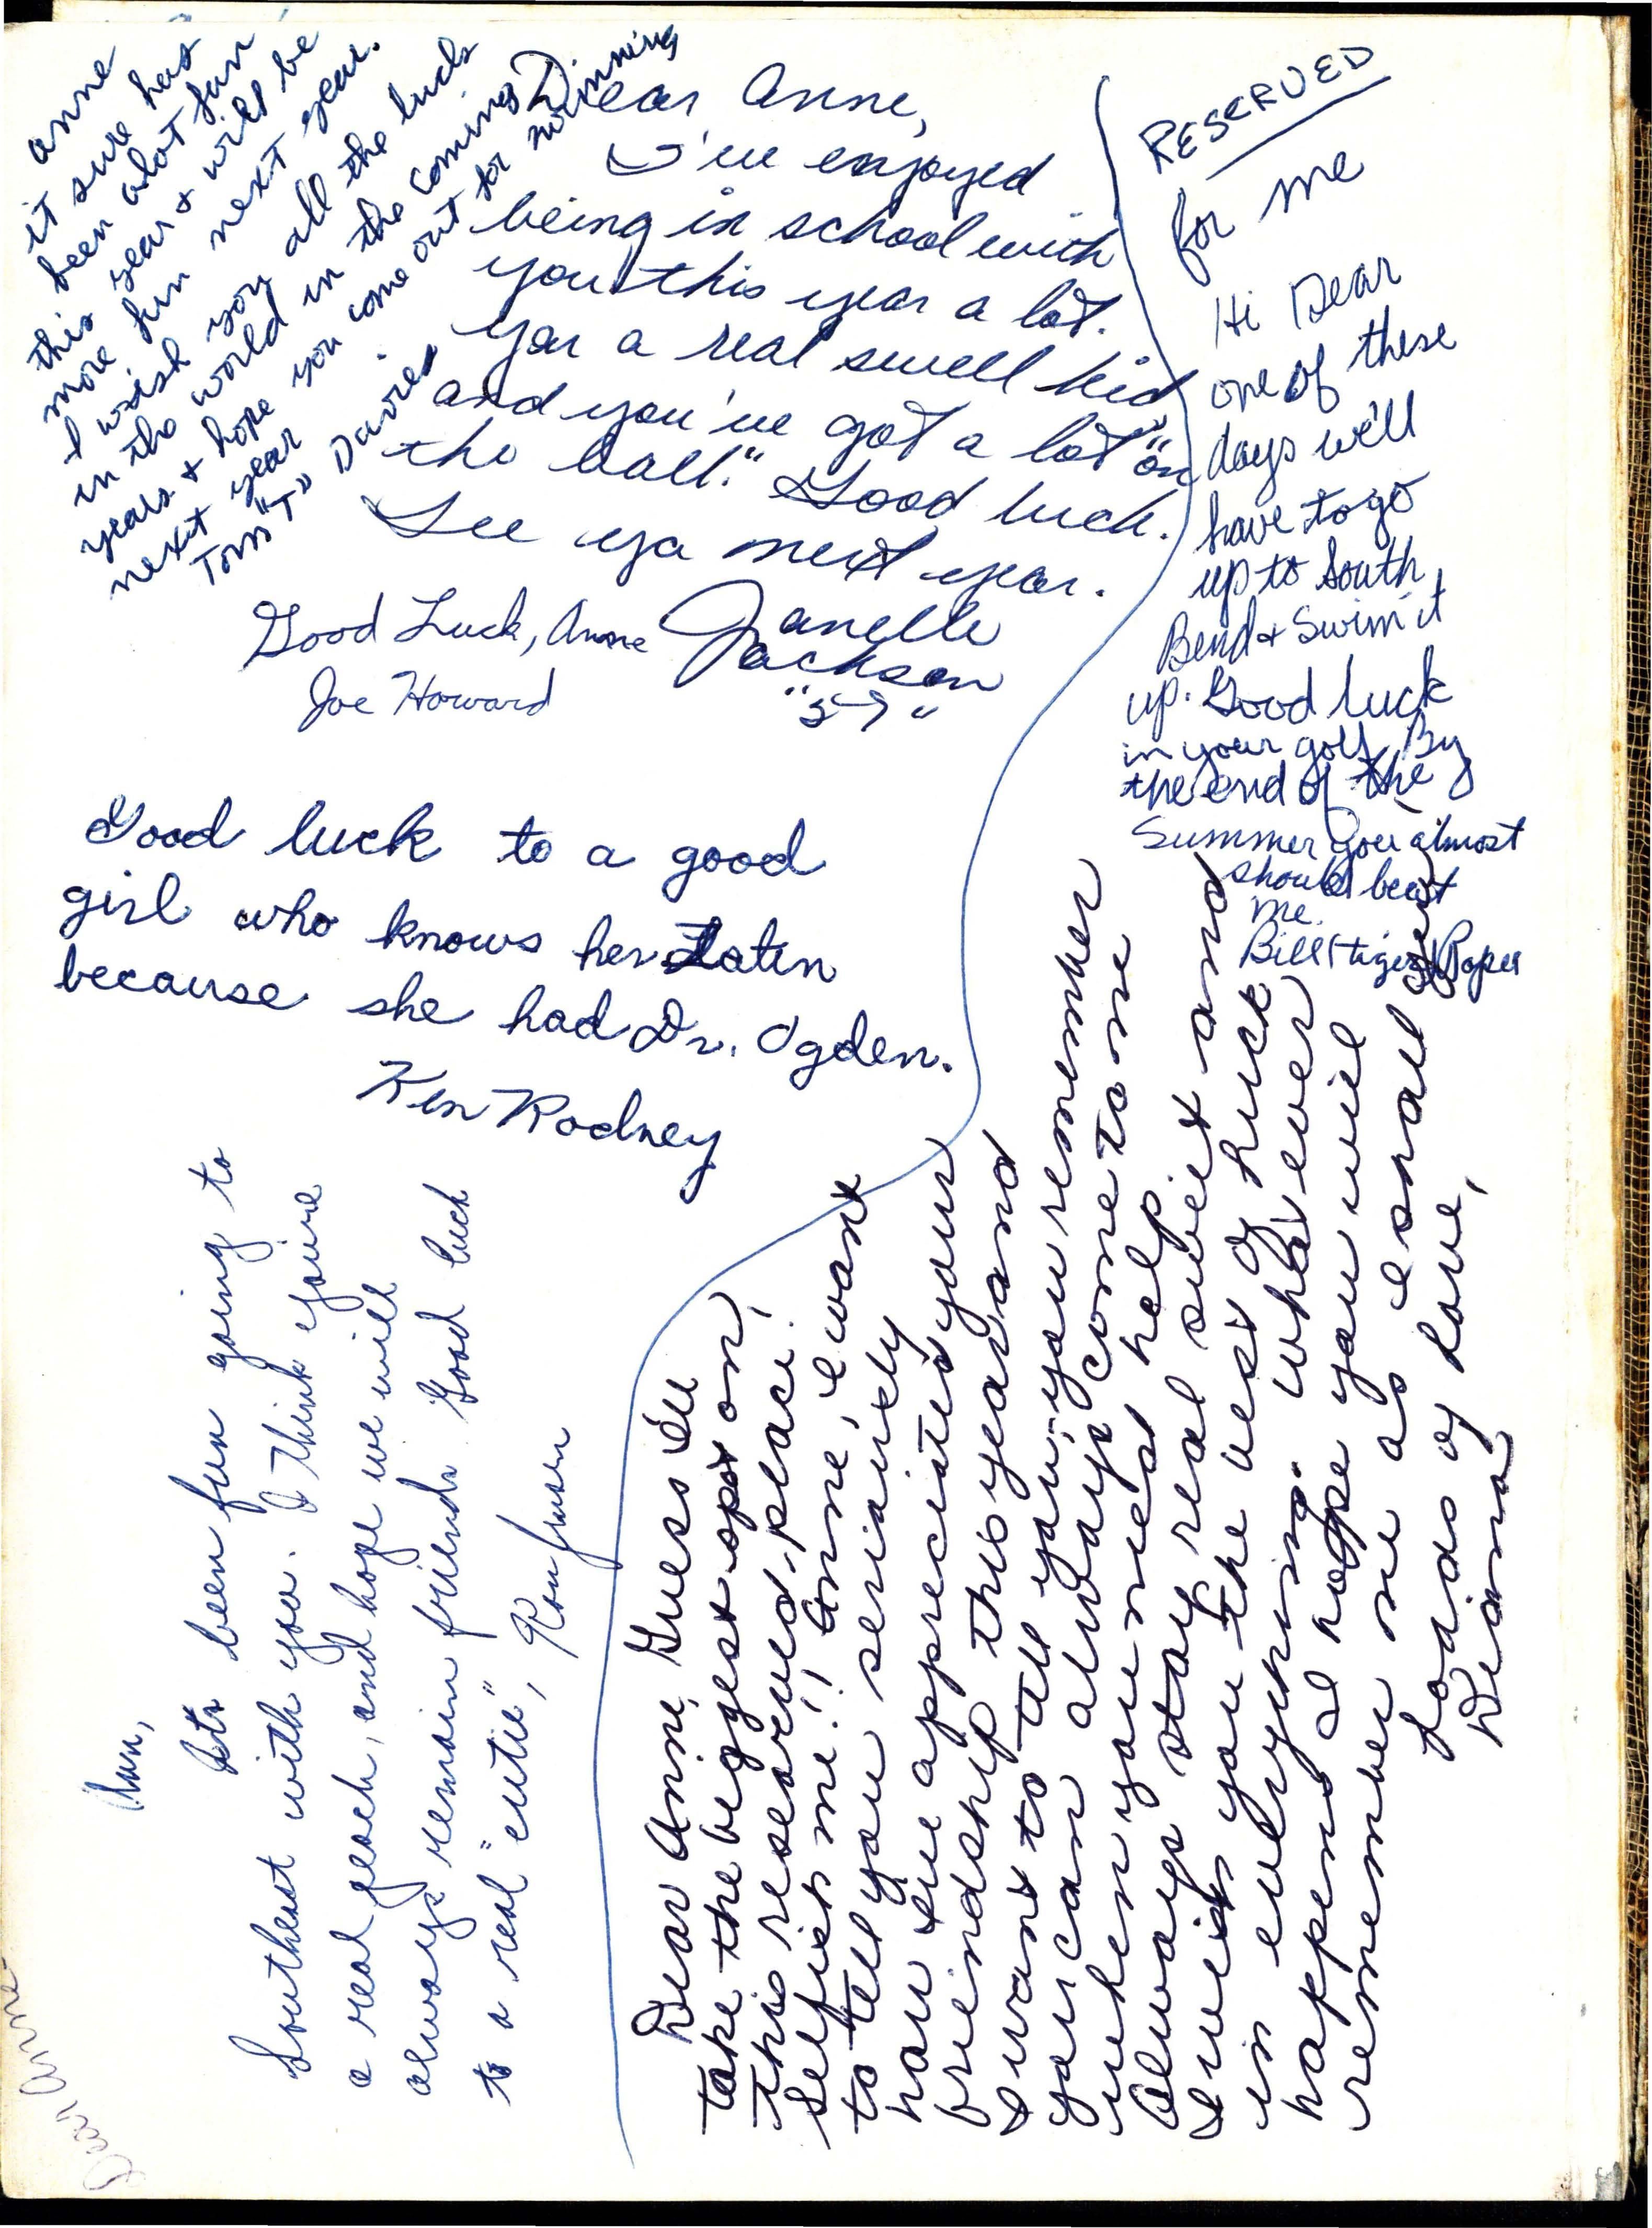 Anne
it sure has
been alot fun
this year & will be
more fun next year.
I wish you all the luck
in the world in the coming
years & hope you come out for swimming
next year
Tom "T" Davies
Dear Anne,
I've enjoyed
being in school with
you this year a lot.
You a real swell kid
and you've got a lot "on
the ball." Good luck.
See ya next year.
Janelle
Jackson
"57"
Good Luck, Anne
Joe Howard
RESERVED
for me
Hi Dear
one of these
days we'll
have to go
up to South
Bend & Swim it
up. Good luck
in your golf. By
the end of the
Summer you almost
should beat
me.
Bill "tiger" Roper
Good luck to a good
girl who knows her Latin
because she had Dr. Ogden.
Ken Rodney
Ann,
Its been fun going to
Southeast with you. I think you're
a real peach, and hope we will
always remain friends. Good luck
to a real "cutie",
Ron
Dear Anne, Guess I'll
take the biggest spot on
this reserved place!
Selfish me!! Anne, I want
to tell you seriously
how I've appreciated your
friendship this year and
I want to tell you, you remember
you can always come to me
when you need help.
Always stay real sweet and
I wish you the best of luck
in everything. Whatever
happens I hope you will
remember me as I shall you
Loads of Love,
Diana
Dear Anne-